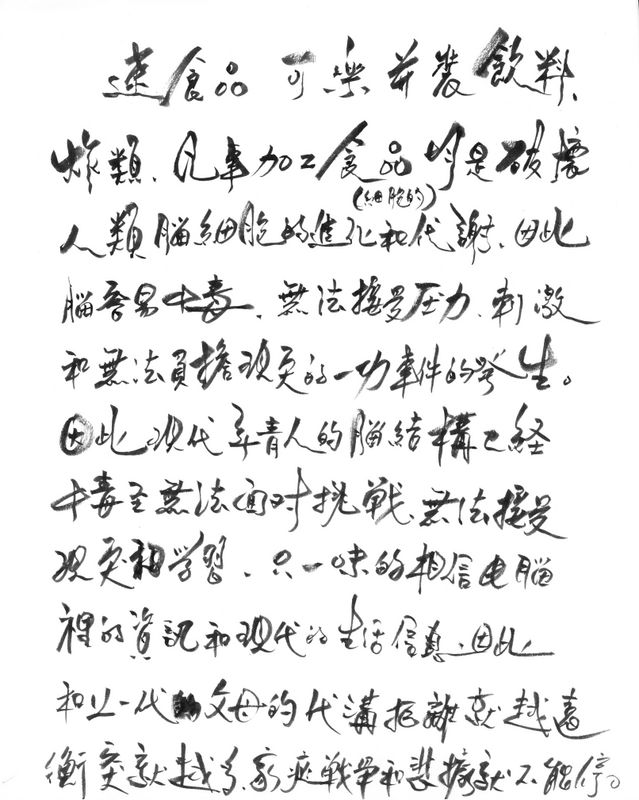 速食品 可樂 并裝飲料、
炸類、凡事加工食品均是破壞
(細胞的)
人類腦細胞的進化和代謝、因此
腦容易中毒、無法接受压力、刺激
和無法負擔現实的一切事件的發生。
因此现代年青人的腦結構已経
中毒至無法面对挑战、無法接受
现实和学習、只一味的相信电腦
裡的資訊和现代的生活信息、因此
和上一代父母的代溝距離就越遠
衝突就越多、家庭战争和悲據就不能停。